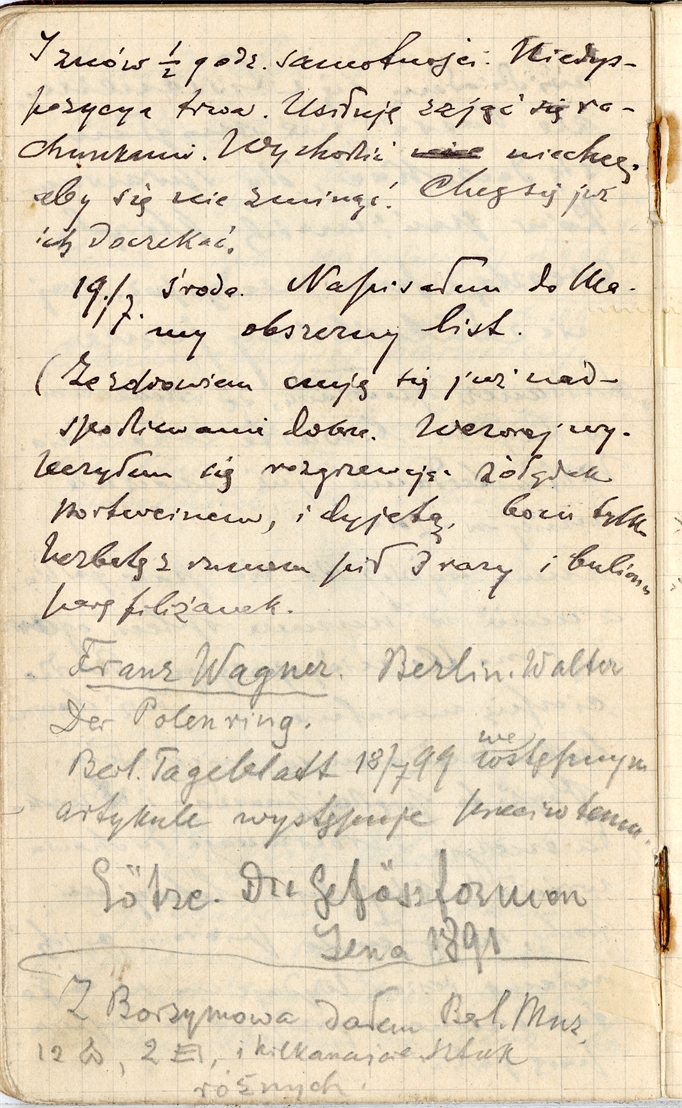 I znów ½ godz. samotności. Niedys-
pozycya trwa. Usiłuję zająć się ra-
chunkami. Wychodzić nie niechcę,
aby się nie zminąć. Chcę się już
ich doczekać.
19/7. środa. Napisałem do Ma-
my obszerny list.
(Ze zdrowiem czuję się już nad-
spodziewanie dobrze. Wczoraj wy-
leczyłem się rozgrzewając żołądek
portweinem, i dyjetą, bom tylko
herbatę z rumem pił 3 razy i bulionu
parę filiżanek.
Franz Wagner. Berlin. Walter
Der Polenring.
Berl. Tageblatt 18/7 99 we wstępnym
artykule występuje przeciw temu.
Götze. Die Gefässformen
Jena 1891
Z Borzymowa dałem Berl. Muz.
12, 2, i kilkanaście sztuk
różnych.